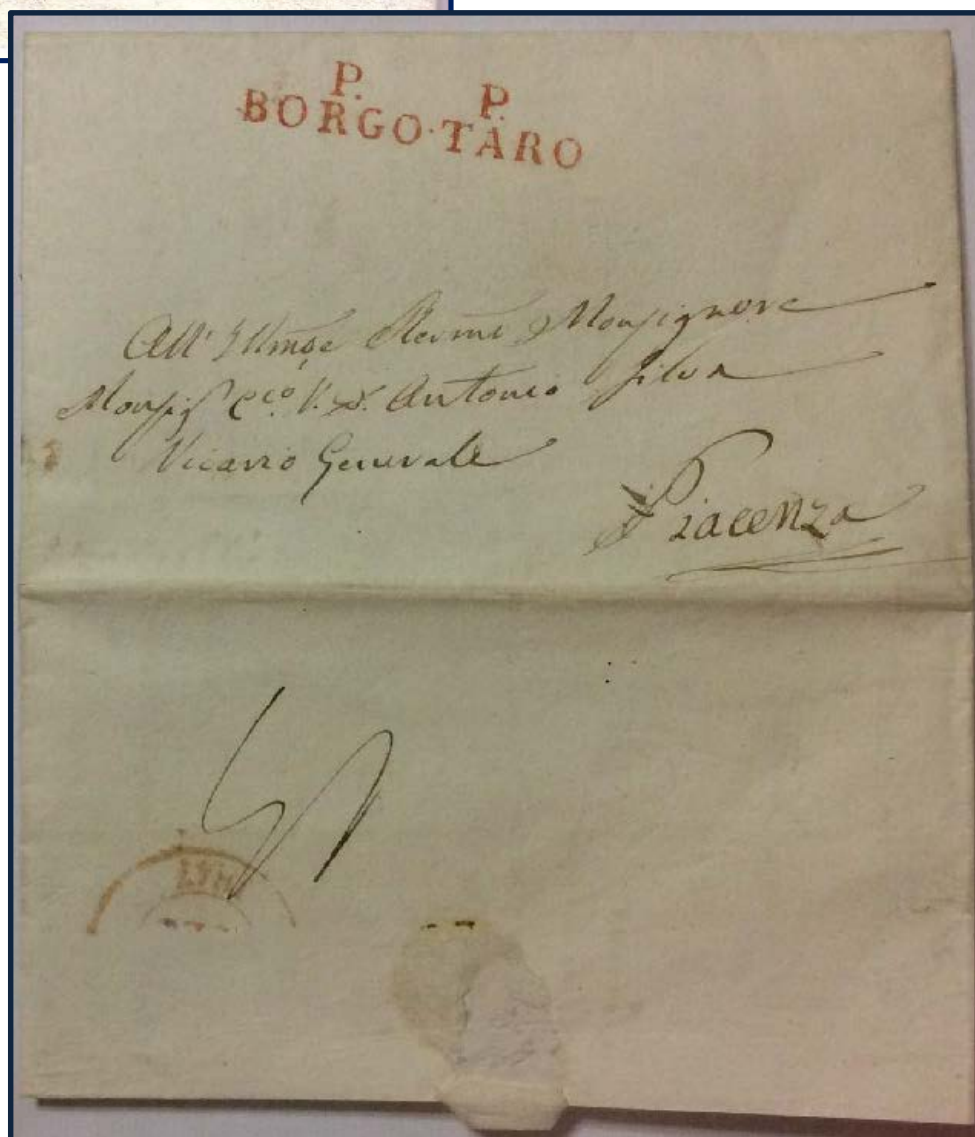 P. P.
BORGO-TARO
All' Illmo e Revmo Monsignore
Monsigr Cco V. D. Antonio Silva
Vicario Generale
Piacenza